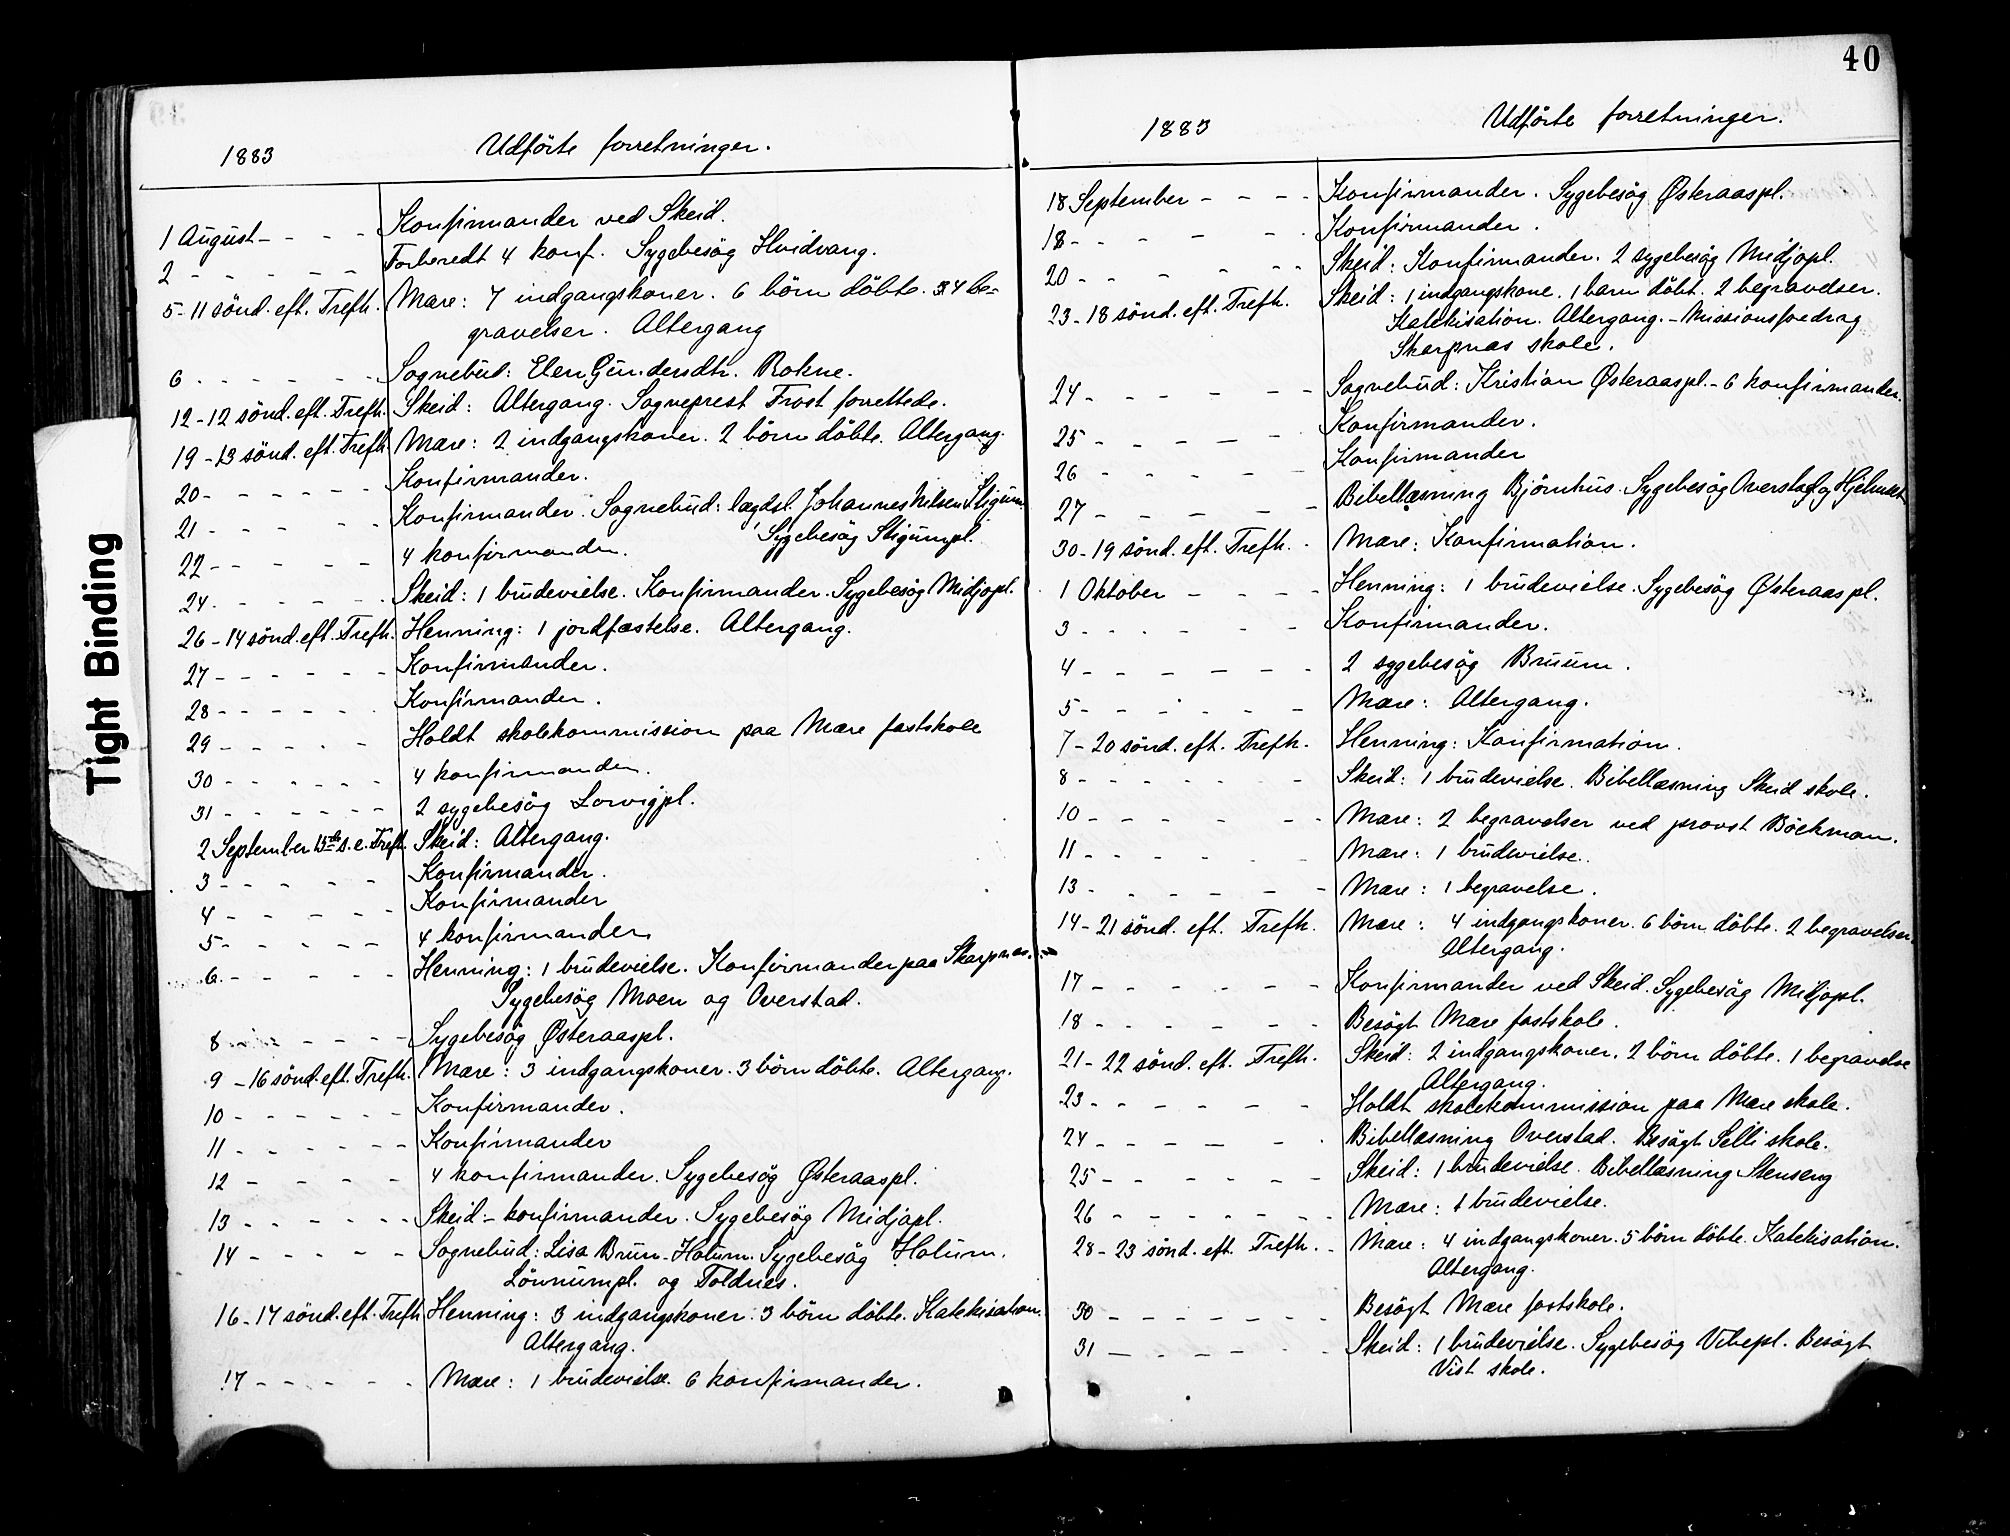 40
Tight Binding
1883 Udförte forretninger.
1 August - - - - Konfirmander ved Skeid.
2 - - - - - - Forberedt 4 konf. Sygebesög Hvidvang.
5 - 11 sönd. eft. Trefh. Mære: 7 indgangskoner. 6 börn döbte. 4 be-
gravelser. Altergang
6 - - - - - - Sognebud: Elen Gundersdtr. Rokne.
12 - 12 sönd. eft. Trefh. Skeid: Altergang. Sogneprest Frost forrettede.
19 - 13 sönd. eft. Trefh. Mære: 2 indgangskoner. 2 börn döbte. Altergang.
20 - - - - - - Konfirmander.
21 - - - - - Konfirmander. Sognebud: lægdsl. Johannes Nilsen Stigum.
22 - - - - - 4 konfirmander. Sygebesög Stigumpl.
24 - - - - - Skeid: 1 brudevielse. Konfirmander. Sygebesög Midjopl.
26 - 14 sönd. eft. Trefh. Henning: 1 jordfæstelse. Altergang.
27 - - - - - - Konfirmander.
28 - - - - - Konfirmander.
29 - - - - - Holdt skolekommission paa Mære fastskole
30 - - - - - - 4 konfirmander.
31 - - - - - - 2 sygebesög Lorvigpl.
2 September 15de s. e. Trefh. Skeid: Altergang.
3 - - - - - Konfirmander.
4 - - - - - Konfirmander
5 - - - - - 4 konfirmander
6 - - - - - Henning: 1 brudevielse. Konfirmander paa Skarpnas.
Sygebesög Moen og Overstad.
8 - - - - - Sygebesög Østeraaspl.
9 - 16 sönd. eft. Trefh. Mære: 3 indgangskoner. 3 börn döbte. Altergang.
10 - - - - - - Konfirmander.
11 - - - - - - Konfirmander
12 - - - - - 4 konfirmander. Sygebesög Østeraaspl.
13 - - - - - - Skeid - konfirmander. Sygebesög Midjopl.
14 - - - - - Sognebud: Lisa Brun - Holum. Sygebesög Holum.
Lönnumpl. og Toldnes.
16 - 17 sönd. eft. Trefh. Henning: 3 indgangskoner. 3 börn döbte. Katekisation.
Altergang.
17 - - - - - Mære: 1 brudevielse. 6 konfirmander.
1883 Udförte forretninger.
18 September - - - - Konfirmander. Sygebesög Østeraaspl.
18 - - - - - Konfirmander.
20 - - - - - - Skeid: Konfirmander. 2 sygebesög Midjopl.
23 - 18 sönd. eft. Trefh. Skeid: 1 indgangskone. 1 barn döbt. 2 begravelser.
Katekisation. Altergang. - Missionsforedrag
Skarpnas skole.
24 - - - - - - Sognebud: Kristian Østeraaspl. - 6 konfirmander.
25 - - - - - Konfirmander.
26 - - - - - Konfirmander
27 - - - - - Bibellæsning Bjömhus. Sygebesög Overstad og
30 - 19 sönd. eft. Trefh. Mære: Konfirmation.
1 Oktober - - - - Henning: 1 brudevielse. Sygebesög Østeraaspl.
3 - - - - - - Konfirmander.
4 - - - - - - 2 sygebesög Bruum.
5 - - - - - - Mære: Altergang.
7 - 20 sönd. eft. Trefh. Henning: Konfirmation.
8 - - - - - - Skeid: 1 brudevielse. Bibellæsning Skeid skole.
10 - - - - - - Mære: 2 begravelser ved provst Böckman.
11 - - - - - - Mære: 1 brudevielse.
13 - - - - - - Mære: 1 begravelse.
14 - 21 sönd. eft. Trefh. Mære: 4 indgangskoner. 6 börn döbte. 2 begravelser.
Altergang.
17 - - - - - - Konfirmander ved Skeid. Sygebesög Midjopl.
18 - - - - - - Besögt Mære fastskole.
21 - 22 sönd. eft. Trefh. Skeid: 2 indgangskoner. 2 börn döbte. 1 begravelse
Altergang.
23 - - - - - - Holdt skolekommission paa Mære skole.
24 - - - - - - Bibellæsning Overstad. Besögt Selli skole.
25 - - - - - - Skeid: 1 brudevielse. Bibellæsning Stenseng
26 - - - - - - Mære: 1 brudevielse.
28 - 23 sönd. eft. Trefh. Mære: 4 indgangskoner. 5 börn döbte. Katekisation.
Altergang.
30 - - - - - - Besögt Mære fastskole.
31 - - - - - - Skeid: 1 brudevielse. Sygebesög Vibepl. Besögt
Vist skole.